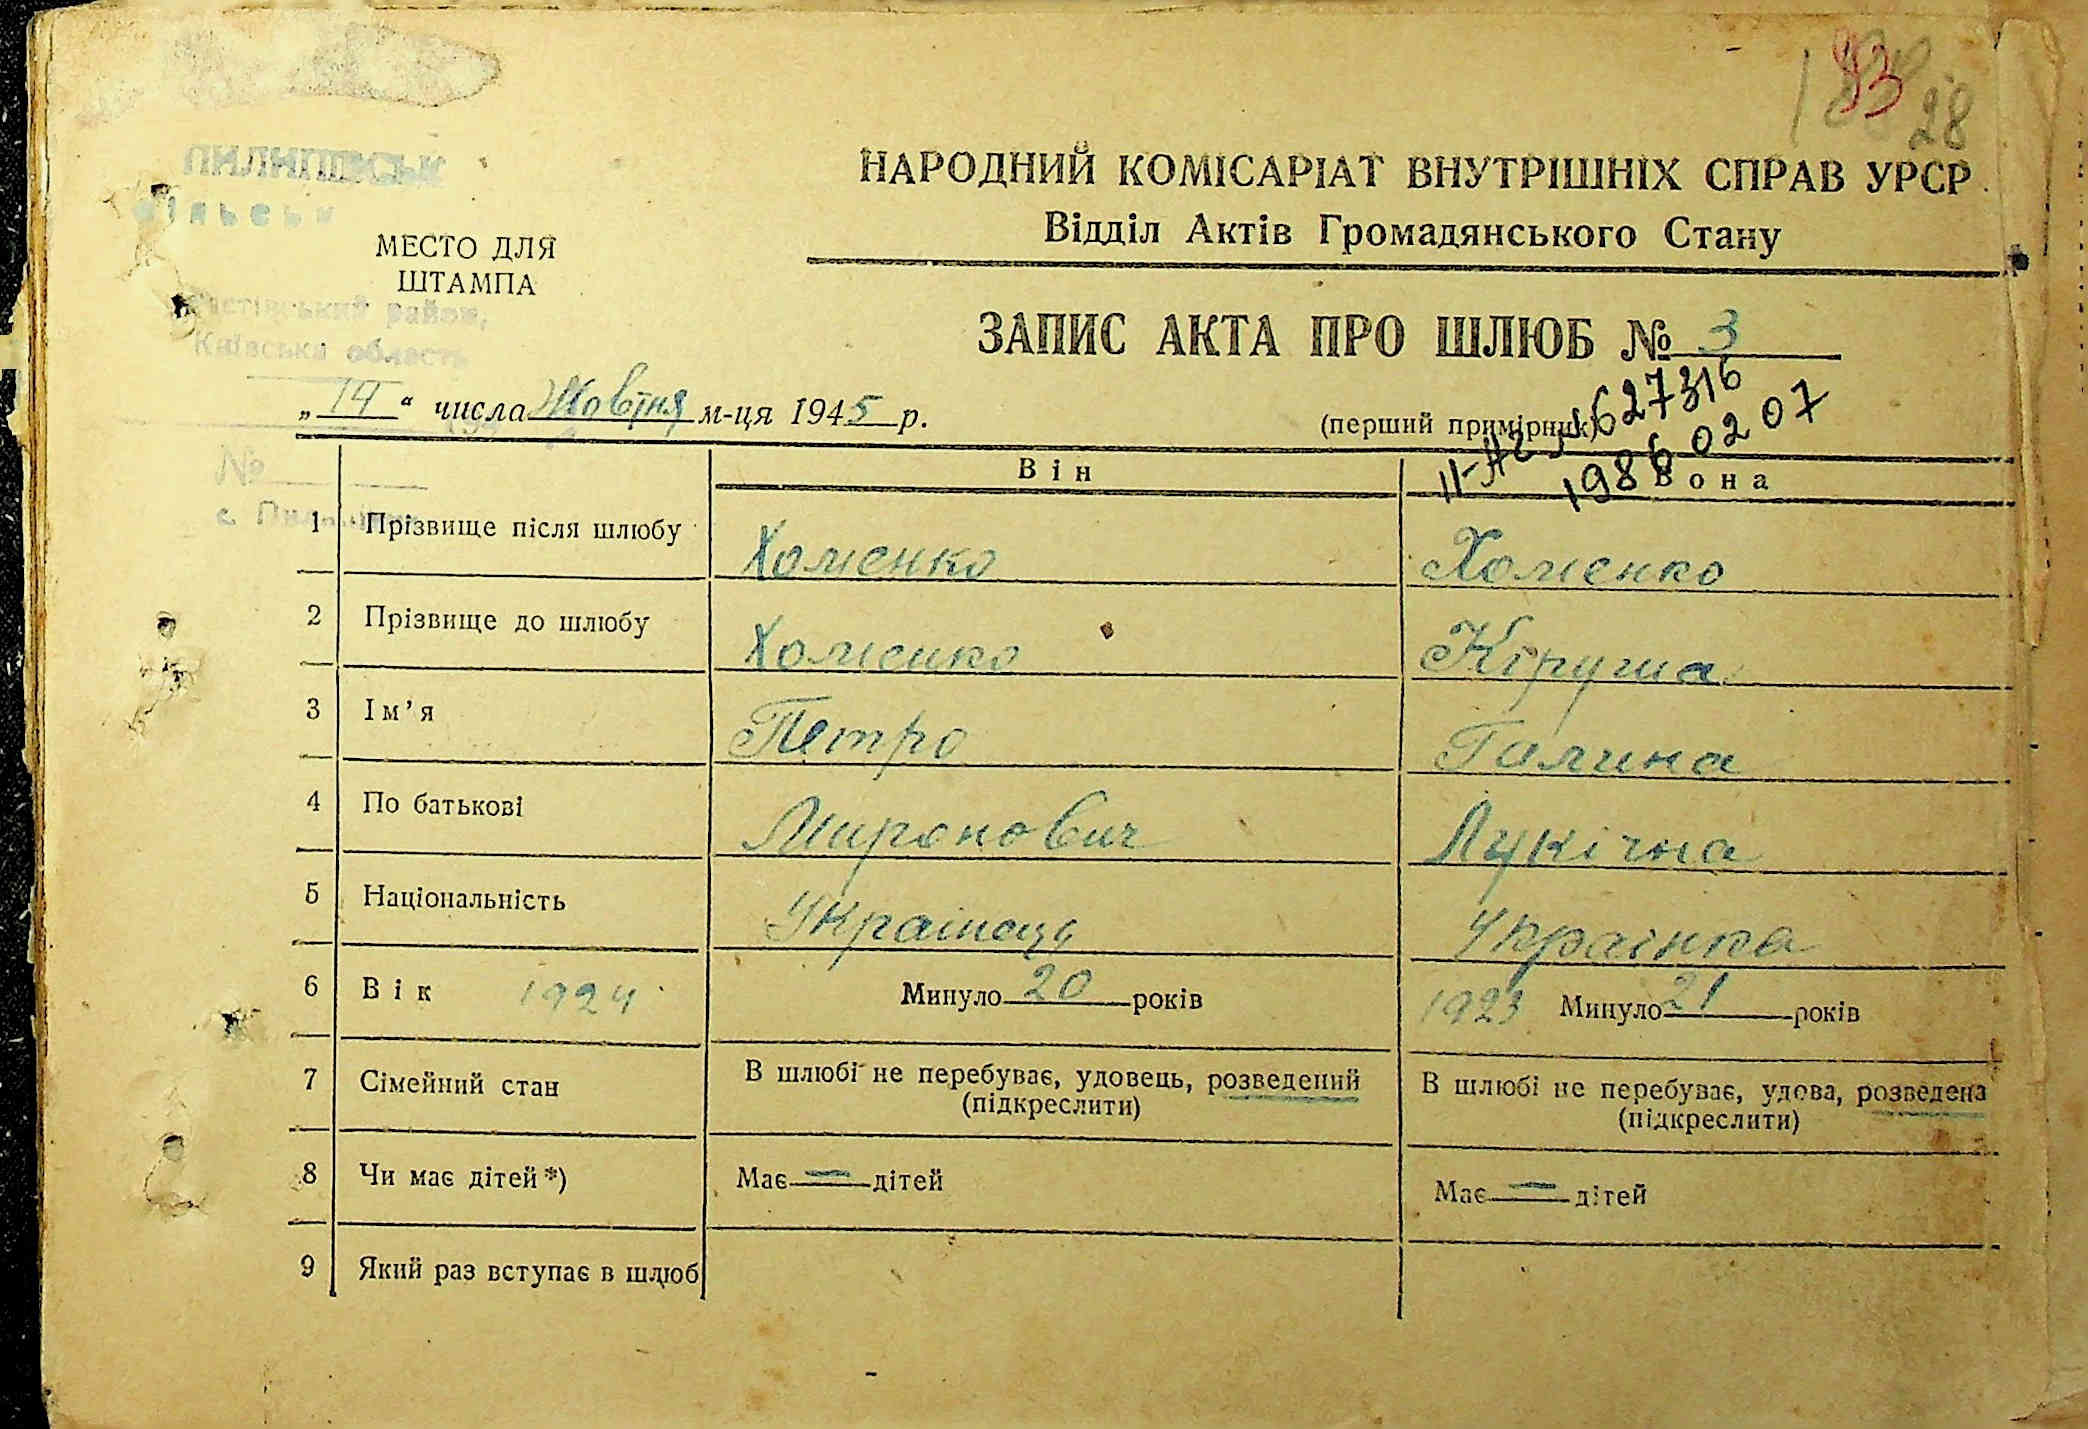 93
28
НАРОДНИЙ КОМІСАРІАТ ВНУТРІШНІХ СПРАВ УРСР
Відділ Актів Громадянського Стану
МЕСТО ДЛЯ
ШТАМПА
район,
Київська область
ЗАПИС АКТА ПРО ШЛЮБ № 3
„14“ числа Жовтня м-ця 1945 р.
(перший примірник)
627316
1986 02 07
№
с.
Він Вона
1 Прізвище після шлюбу Хоменко Хоменко
2 Прізвище до шлюбу Хоменко Кіруша
3 Ім’я Петро Галина
4 По батькові Миронович Лукічна
5 Національність Українець Українка
6 Вік 1924 Минуло 20 років 1923 Минуло 21 років
7 Сімейний стан В шлюбі не перебуває, удовець, розведений (підкреслити) В шлюбі не перебуває, удова, розведена (підкреслити)
8 Чи має дітей *) Має — дітей Має — дітей
9 Який раз вступає в шлюб